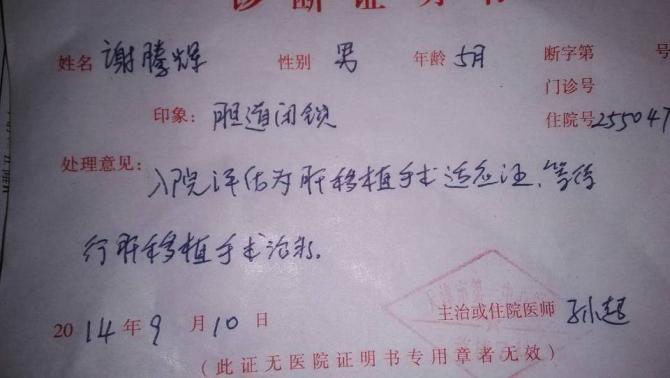 诊断证明书
姓名 谢腾辉 性别 男 年龄 5月 断字第 号
门诊号
印象: 胆道闭锁 住院号 255047
处理意见: 入院评估为肝移植手术适应证、等待
行肝移植手术治疗。
2014年9月10日 主治或住院医师 孙超
(此证无医院证明书专用章者无效)